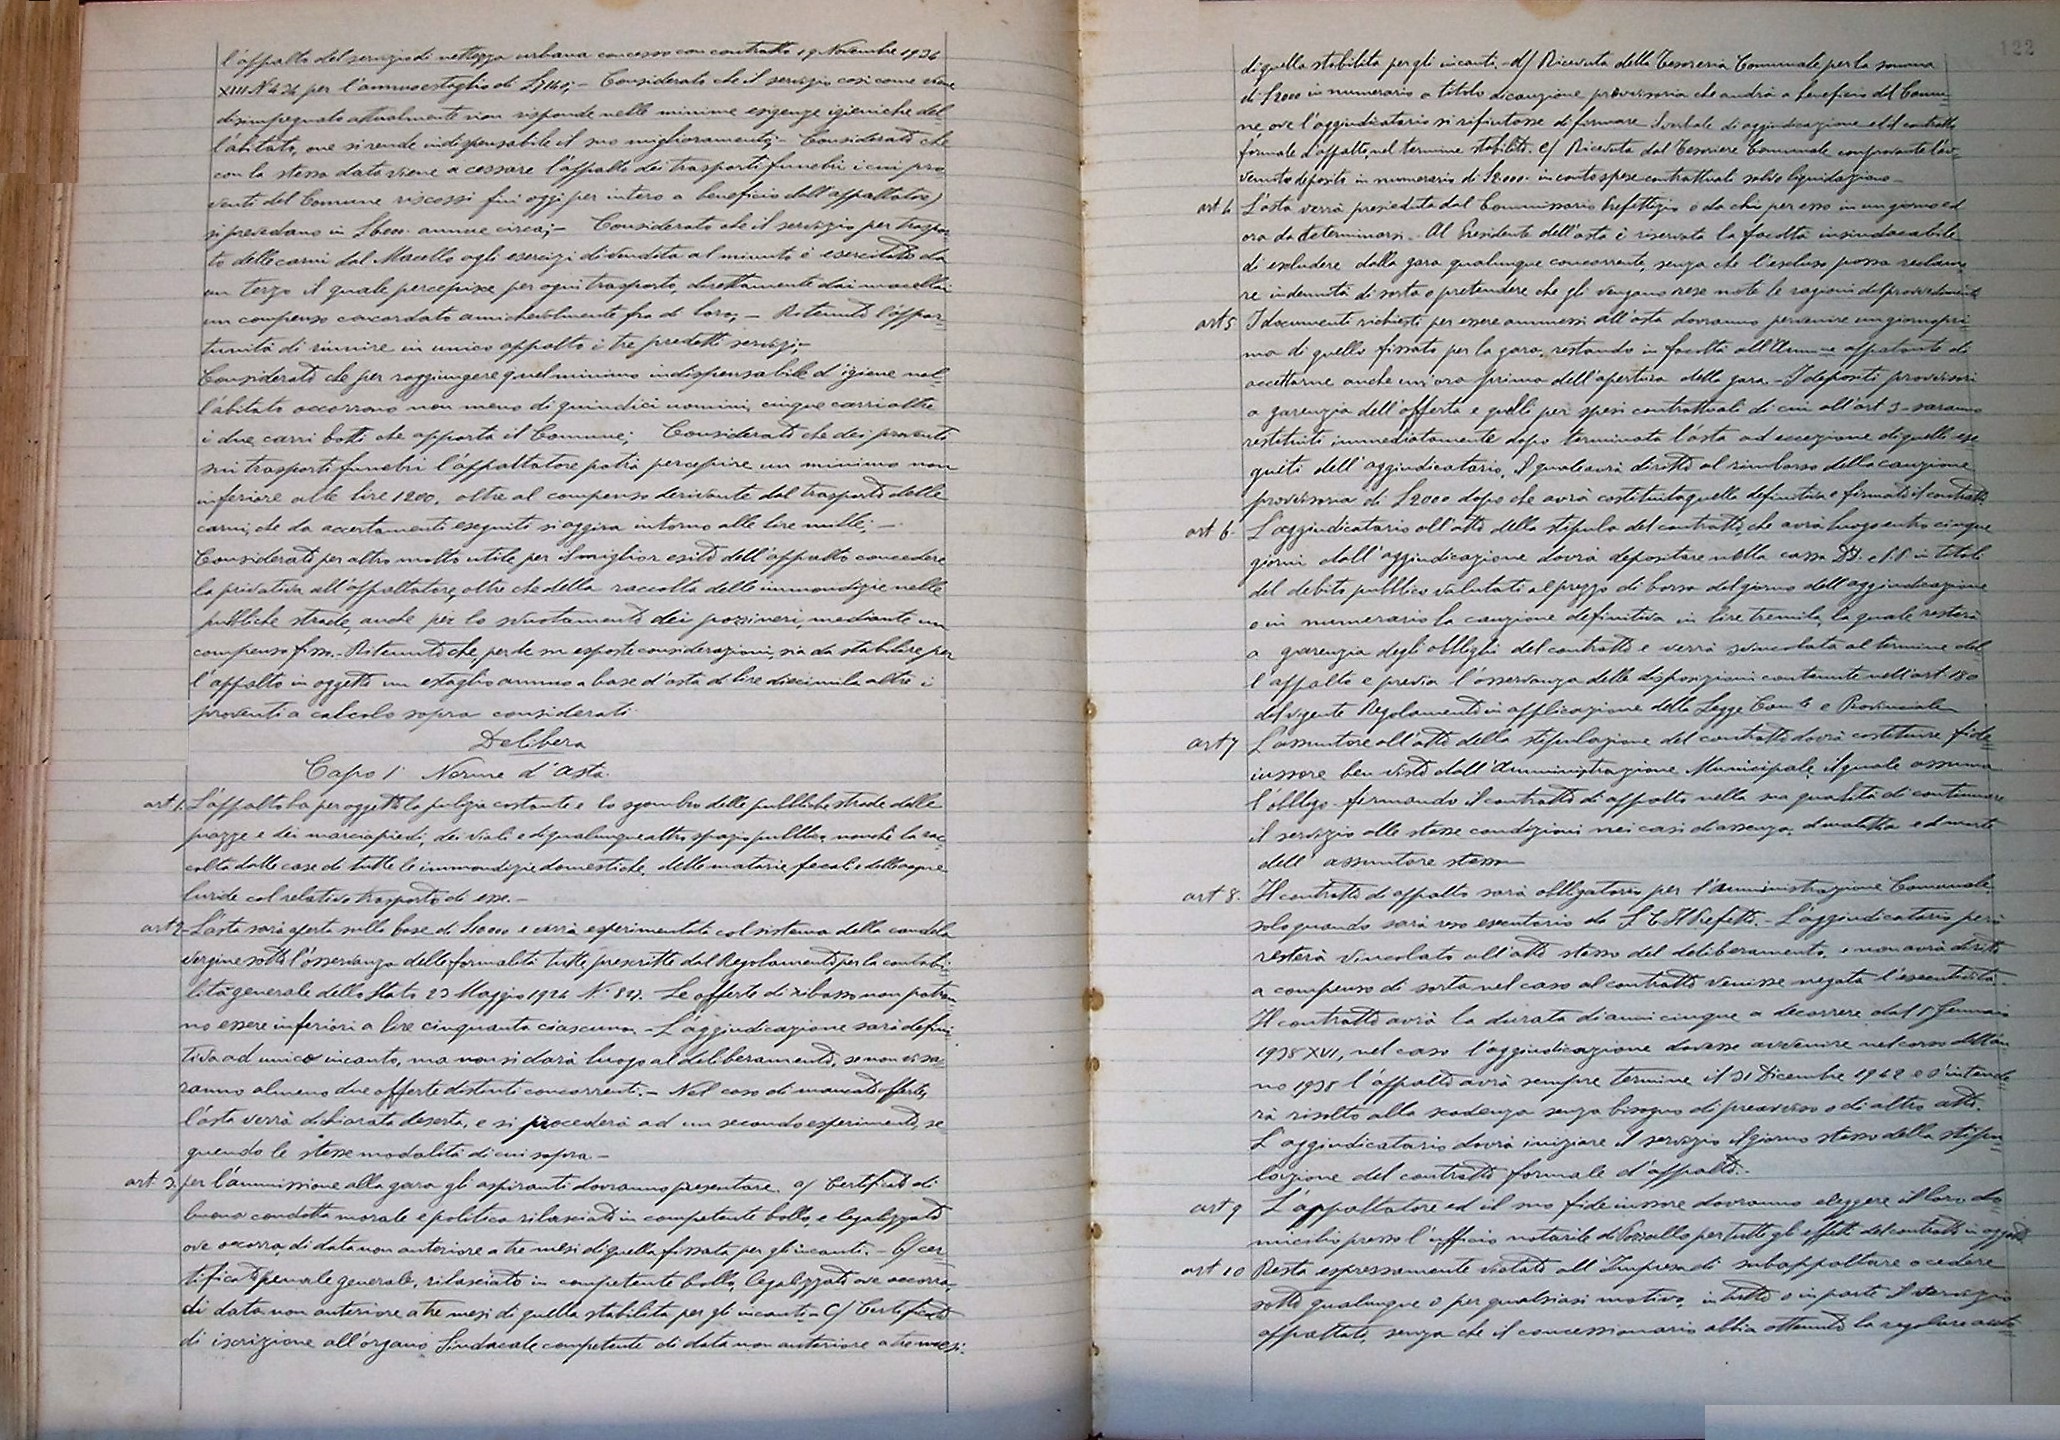 l'appalto del servizio di nettezza urbana concesso con contratto 19 Novembre 1934
XIII N 424 per l'annuo estaglio di Considerato che il servizio così come viene
disimpegnato attualmente non risponde nelle minime esigenze igieniche del
l'abitato, onde si rende indispensabile il suo miglioramento; - Considerato che
con la stessa data viene a cessare l'appalto dei trasporti funebri i cui pro
venti del Comune riscossi fin oggi per intero a beneficio dell'appaltatore)
si prevedano in L 600. annue circa; - Considerato che il servizio per traspor
to delle carni dal Macello agli esercizi di vendita al minuto è esercitato da
un terzo il quale percepisce per ogni trasporto, direttamente dai macellai
un compenso concordato amichevolmente fra di loro; - Ritenuto l'oppor-
tunità di riunire in unico appalto i tre predetti servizi;-
Considerato che per raggiungere quel minimo indispensabile d'igiene nel-
l'abitato occorrono non meno di quindici uomini, cinque carri oltre
i due carri botti che apporta il Comune; Considerato che dei proventi
sui trasporti funebri l'appaltatore potrà percepire un minimo non
inferiore alle lire 1200, oltre al compenso derivante dal trasporto delle
carni, che da accertamenti eseguiti si aggira intorno alle lire mille; -
Considerato per altro molto utile per il miglior esito dell'appalto concedere
la privativa all'appaltatore, oltre che della raccolta delle immondizie nelle
pubbliche strade, anche per lo svuotamento dei pozzi neri, mediante un
compenso fisso. - Ritenuto che, per le su esposte considerazioni, sia da stabilire per
l'appalto in oggetto un estaglio annuo a base d'asta di lire diecimila oltre i
proventi a calcolo sopra considerati
Delibera
Capo 1° Norme d'asta.
art. 1. L'appalto ha per oggetto la pulizia costante e lo sgombro delle pubbliche strade delle
piazze e dei marciapiedi, dei viali e di qualunque altro spazio pubblico, nonchè la rac-
colta dalle case di tutte le immondizie domestiche, delle materie fecali e delle acque
luride col relativo trasporto di esse. -
art 2 - L'asta sarà aperta sulla base di L 10000 e verrà esperimentata col sistema della candela
vergine sotto l'osservanza delle formalità tutte prescritte dal Regolamento per la contabi-
lità generale dello Stato 23 Maggio 1924 N° 827. Le offerte di ribasso non potran
no essere inferiori a lire cinquanta ciascuna. - L'aggiudicazione sarà defini
tiva ad unico incanto, ma non si darà luogo al deliberamento, se non vi sa-
ranno almeno due offerte distinti concorrenti. - Nel caso di mancate offerte,
l'asta verrà dichiarata deserta, e si procederà ad un secondo esperimento, se
guendo le stesse modalità di cui sopra -
art 3. per l'ammissione alla gara gli aspiranti dovranno presentare. a/ Certificato di
buona condotta morale e politica rilasciato in competente bollo, e legalizzato
ove occorra, di data non anteriore a tre mesi di quella fissata per gli incanti. - b/ cer-
tificato penale generale, rilasciato in competente bollo, legalizzato ove occorra,
di data non anteriore a tre mesi di quella stabilita per gli incanti - c/ Certificato
di iscrizione all'organo Sindacale competente di data non anteriore a tre mesi.
122
di quella stabilita per gli incanti. - d/ Ricevuta della Tesoreria Comunale per la somma
di L 2000 in numerario a titolo di cauzione provvisoria che andrà a beneficio del Comu-
ne ove l'aggiudicatario si rifiutasse di firmare il verbale di aggiudicazione ed il contratto
formale d'appalto, nel termine stabilito. e/ Ricevuta dal Tesoriere Comunale comprovante l'av-
venuto deposito in numerario di L 2000. in conto spese contrattuali salvo liquidazione -
art 4. L'asta verrà presieduta dal Commissario Prefettizio o da chi per esso in un giorno ed
ora da determinarsi. - Al Presidente dell'asta è riservata la facoltà insindacabile
di escludere dalla gara qualunque concorrente, senza che l'escluso possa reclama
re indennità di sorta o pretendere che gli vengano rese note le ragioni del provvedimento
art 5 I documenti richiesti per essere ammessi all'asta dovranno pervenire un giorno pri-
ma di quello fissato per la gara, restando in facoltà all'Amm.ne appaltante di
accettarne anche un'ora prima dell'apertura della gara. - I depositi provvisori
a garenzia dell'offerta e quelli per spesi contrattuali di cui all'art 3 - saranno
restituiti immediatamente dopo terminata l'asta ad eccezione di quelli ese
guiti dell'aggiudicatario, il quale avrà diritto al rimborso della cauzione
provvisoria di L 2000 dopo che avrà costituita quella definitiva e firmato il contratto.
art 6. L'aggiudicatario all'atto della stipula del contratto, che avrà luogo entro cinque
giorni dall'aggiudicazione dovrà depositare nella cassa DD. e PP in titoli
del debito pubblico valutati al prezzo di borsa del giorno dell'aggiudicazione
o in numerario la cauzione definitiva in lire tremila, la quale resterà
a garenzia degli obblighi del contratto e verrà svincolata al termine del
l'appalto e previa l'osservanza delle disposizioni contenute nell'art 180
del vigente Regolamento in applicazione della Legge Com.le e Provinciale
art 7 L'assuntore all'atto della stipulazione del contratto dovrà costituire fide
iussore ben visto dall'Amministrazione Municipale, il quale assuma
l'obbligo firmando il contratto di appalto nella sua qualità di continuare
il servizio alle stesse condizioni nei casi di assenza, di malattia e di morte
dell'assuntore stesso
art 8. Il contratto di appalto sarà obbligatorio per l'Amministrazione Comunale
solo quando sarà reso esecutorio da S. E. Il Prefetto. - L'aggiudicatario però
resterà vincolato all'atto stesso del deliberamento, e non avrà diritto
a compenso di sorta nel caso al contratto venisse negata l'esecutività.
Il contratto avrà la durata di anni cinque a decorrere dal 1° Gennaio
1938 XVI, nel caso l'aggiudicazione dovesse avvenire nel corso dell'an-
no 1938 l'appalto avrà sempre termine il 31 Dicembre 1942 e s'intende
rà risolto alla scadenza senza bisogno di preavviso o di altro atto.
L'aggiudicatario dovrà iniziare il servizio il giorno stesso della stipu
lazione del contratto formale d'appalto. -
art 9 L'appaltatore ed il suo fideiussore dovranno eleggere il loro do
micilio presso l'ufficio notarile di Pozzallo per tutti gli effetti del contratto in oggetto
art 10 Resta espressamente vietato all'Impresa di subappaltare o cedere
sotto qualunque o per qualsiasi motivo, in tutto o in parte il servizio
appaltato, senza che il concessionario abbia ottenuto la regolare auto-